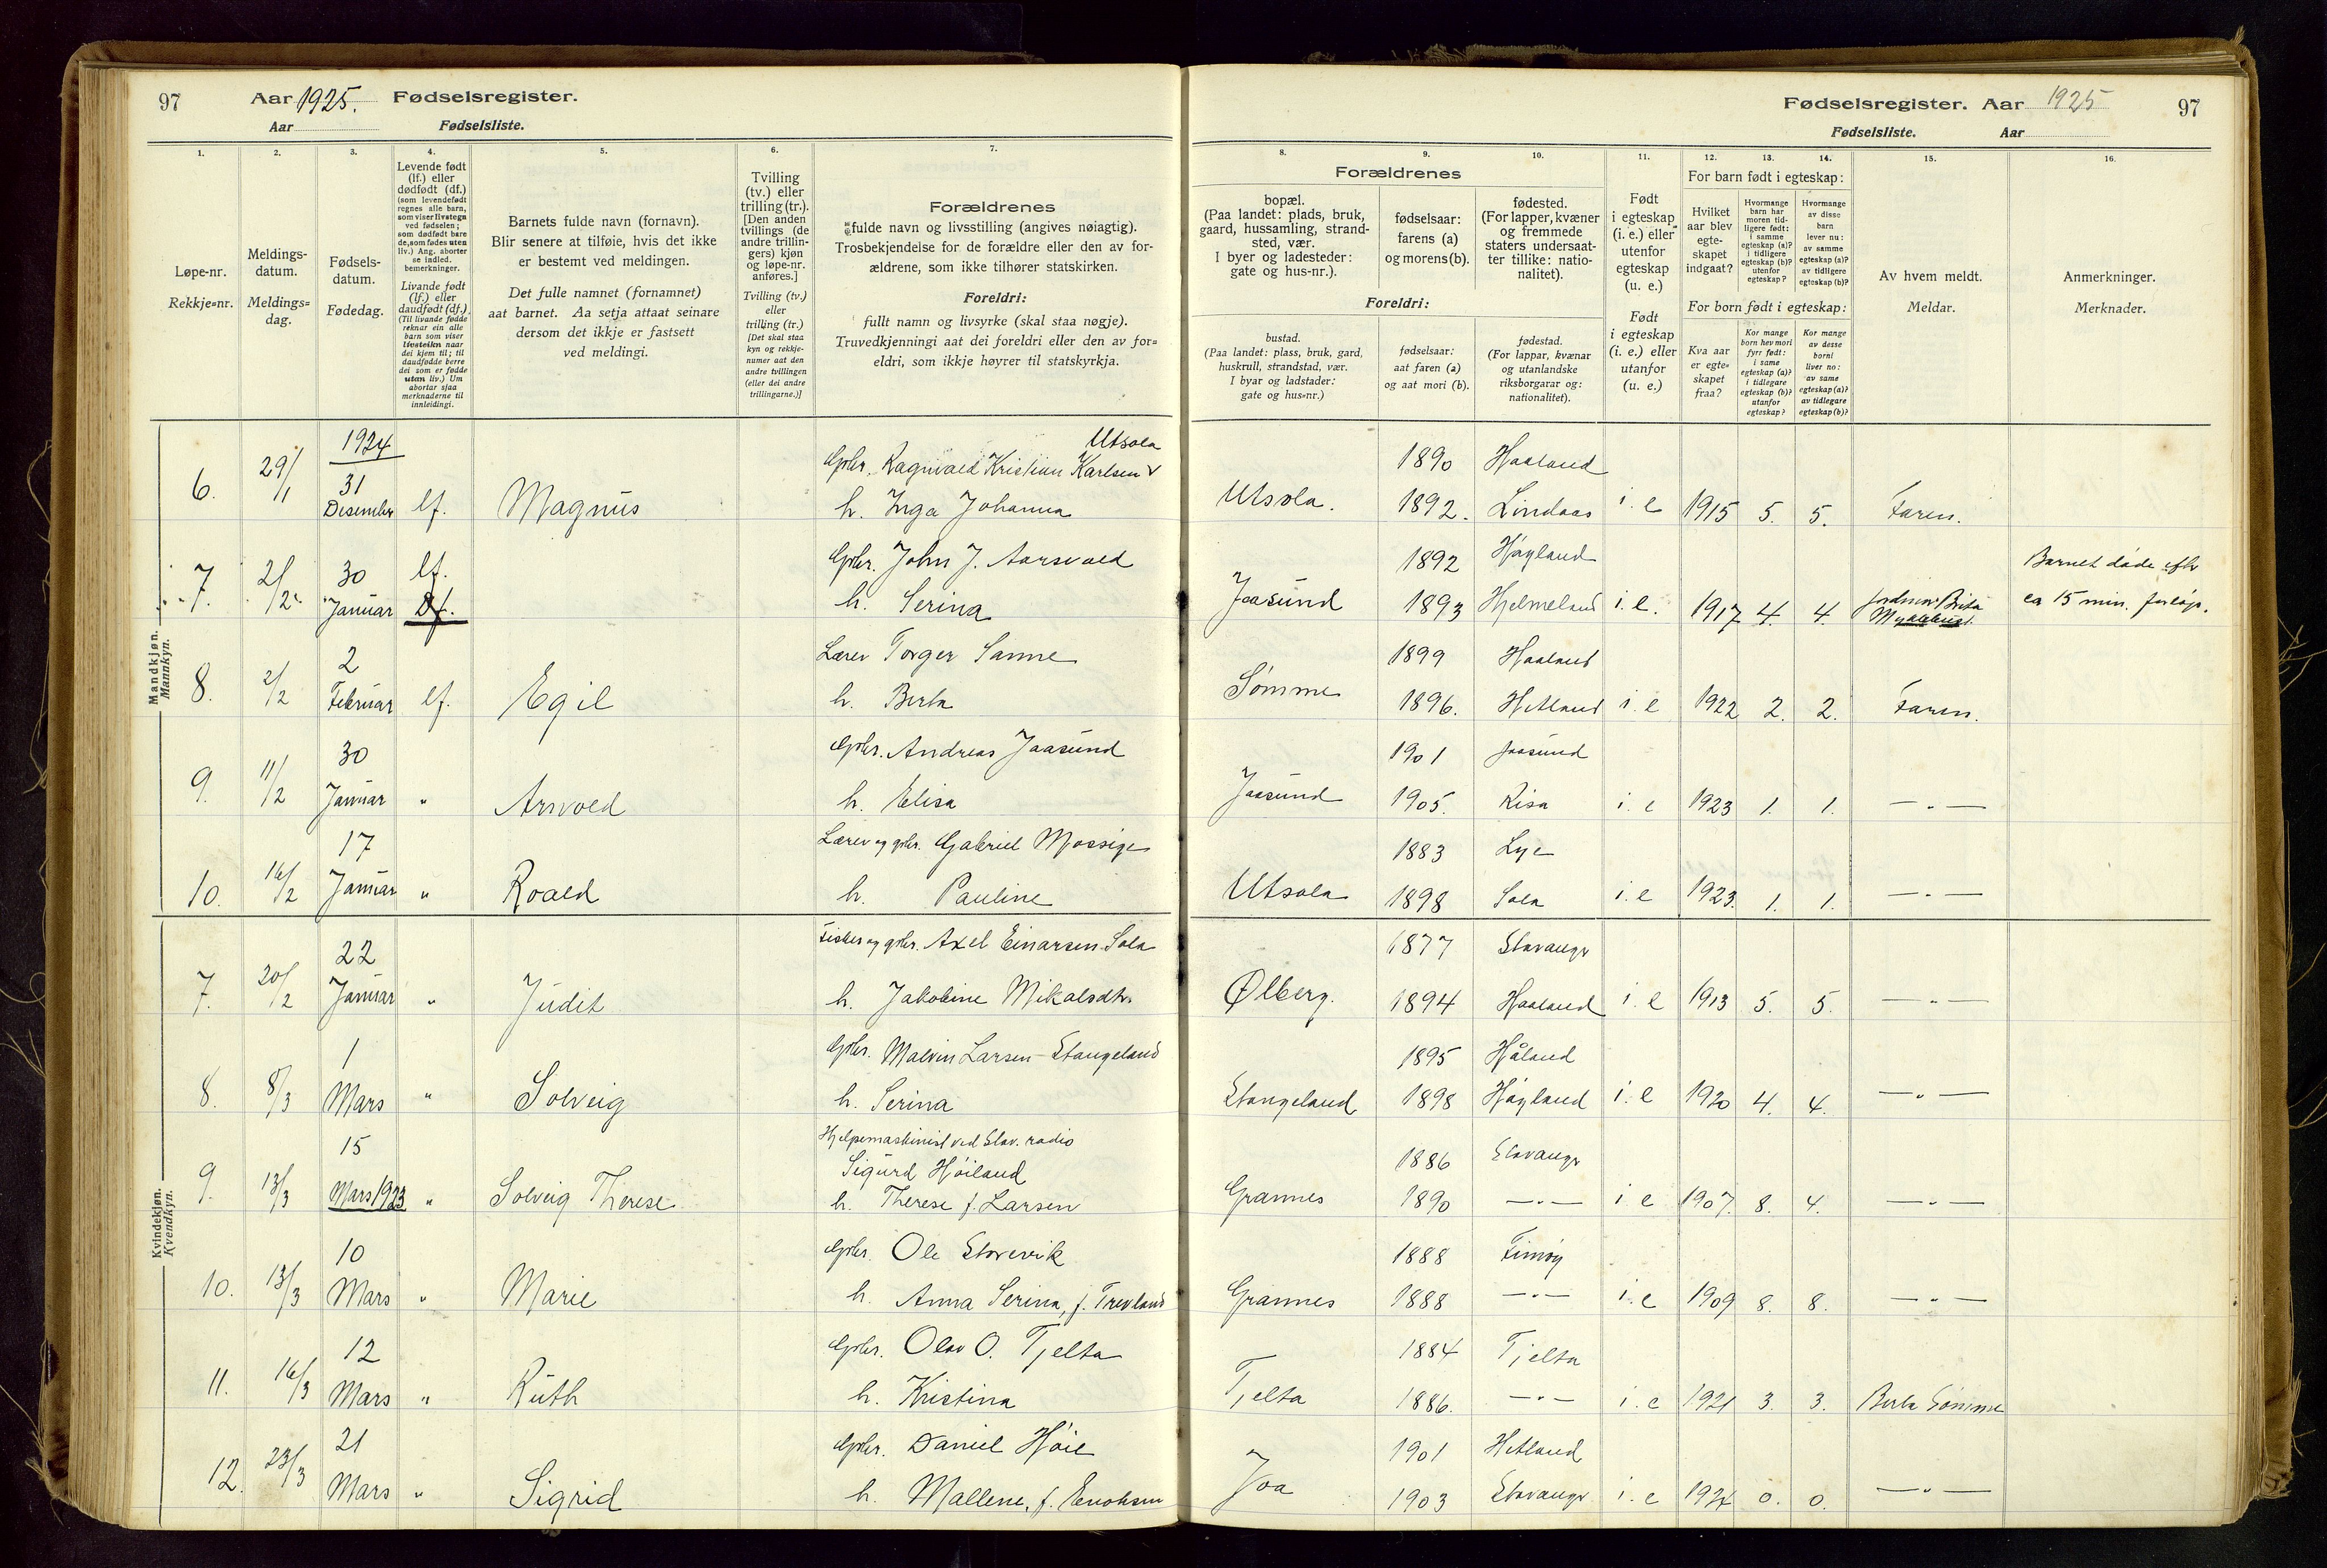 97 Aar 1925. Fødselsregister.
Aar Fødselsliste.
Fødselsregister. Aar 1925 97
Fødselsliste. Aar
1. 2. 3. 4. 5. 6. 7.
Løpe-nr.
Rekkje=nr.
Meldings-
datum.
Meldings=
dag.
Fødsels-
datum.
Fødedag.
Levende født
(lf.) eller
dødfødt (df.)
(som levendefødt
regnes alle barn,
som viser livstegn
ved fødselen;
som dødfødt bare
de, som fødes uten
liv.) Ang. aborter
se indled.
bemerkninger.
Livande født
(lf.) eller
daudfødt (df.)
(Til livande fødde
reknar ein alle
barn som viser
livsteikn naar
dei kjem til; til
daudfødde berre
dei som er fødde
utan liv.) Um
abortar sjaa
merknaderne til
innleidingi.
Barnets fulde navn (fornavn).
Blir senere at tilføie, hvis det ikke
er bestemt ved meldingen.
Det fulle namnet (fornamnet)
aat barnet. Aa setja attaat seinare
dersom det ikkje er fastsett
ved meldingi.
Tvilling
(tv.) eller
trilling (tr.).
[Den anden
tvillings (de
andre trillin-
gers) kjøn
og løpe-nr.
anføres.]
Tvilling (tv.)
eller
trilling (tr.)
[Det skal staa
kyn og rekkje-
numer aat den
andre tvillingen
(eller dei andre
trillingarne.)]
Forældrenes
fulde navn og livsstilling (angives nøiagtig).
Trosbekjendelse for de forældre eller den av for-
ældrene, som ikke tilhører statskirken.
Foreldri:
fullt namn og livsyrke (skal staa nøgje).
Truvedkjenningi aat dei foreldri eller den av for=
eldri, som ikkje høyrer til statskyrkja.
8. 9. 10. 11. 12. 13. 14. 15. 16.
Forældrenes
bopæl.
(Paa landet: plads, bruk,
gaard, hussamling, strand-
sted, vær.
I byer og ladesteder:
gate og hus-nr.).
fødselsaar:
farens (a)
og morens (b).
fødested.
(For lapper, kvæner
og fremmede
staters undersaat-
ter tillike: natio-
nalitet).
Foreldri:
bustad.
(Paa landet: plass, bruk, gard,
huskrull, strandstad, vær.
I byar og ladstader:
gate og hus=nr.)
fødselsaar:
aat faren (a)
og aat mori (b).
fødestad.
(For lappar, kvænar
og utanlandske
riksborgarar og:
nationalitet).
Født
i egteskap
(i. e.) eller
utenfor
egteskap
(u. e.)
Født
i egteskap
(i. e.) eller
utanfor
(u. e.)
For barn født i egteskap:
Hvilket
aar blev
egte-
skapet
indgaat?
Hvormange
barn har
moren tid-
ligere født:
i samme
egteskap (a)?
i tidligere
egteskap (b)?
utenfor
egteskap?
Hvormange
av disse
barn
lever nu:
av samme
egteskap (a)?
av tidligere
egteskap (b)?
For born født i egteskap:
Kva aar
er egte=
skapet
fraa?
Kor mange
born hev mori
fyrr født:
i same
egteskap (a)?
i tidlegare
egteskap (b)?
utanfor
egteskap?
Kor mange
av desse
borni
liver no:
av same
egteskap (a)?
av tidlegare
egteskap (b)?
Av hvem meldt.
Meldar.
Anmerkninger.
Merknader.
Mandkjøn.
Mannkyn.
6. 29/1 1924 31 Desember lf. Magnus
Gbr. Ragnvald Kristian Karlsen Utsola
h. Inga Johanna
Utsola. 1890 Haaland
1892. Lindaas i. e 1915 5. 5. Faren.
7. 2/2 30 Januar lf. Df.
Gbr. John J. Aarsvold
h. Serina
Jaasund 1892 Høyland
1893 Hjelmeland i. e. 1917 4. 4. Jordmor Brita
Myklebust.
Barnet døde efter
ca 15 min. forløp.
8. 2/2 2 Februar lf. Egil
Lærer Torger Sanne
h. Berta
Sømme 1899 Haaland
1896. Hetland i. e 1922 2. 2. Faren.
9. 11/2 30 Januar " Arnvold
Gbr. Andreas Jaasund
h. Elisa
Jaasund 1901 Jaasund
1905. Risa i. e 1923 1. 1. — " —
10. 16/2 17 Januar " Roald
Lærer og gbr. Gabriel Mossige
h. Pauline
Utsola 1883 Lye
1898 Sola i. e 1923. 1. 1. — " —
Kvindekjøn.
Kvendkyn.
7. 20/2 22 Januar " Judit
Fisker og gbr. Axel Einarsen Sola
h. Jakobine Mikalsdtr.
Ølberg. 1877 Stavangr
1894 Haaland i. e 1913 5. 5. — " —
8. 8/3 1 Mars " Solveig
Gbr. Malvin Larsen-Stangeland
h. Serina
Stangeland 1895 Håland
1898 Høyland i. e 1920 4. 4. — " —
9. 13/3 15 Mars 1923 " Solveig Therese
Hjelpemaskinist ved Stav. radio
Sigurd Høiland
h. Therese f. Larsen
Grannes 1886 Stavangr
1890 — " — i e 1907. 8. 4. — " —
10. 13/3 10 Mars " Marie
Gbr. Ole Storevik
h. Anna Serina, f. Trevland
Grannes 1888 Finnøy
1888 — " — i. e 1909 8. 8. — " —
11. 16/3 12 Mars " Ruth
Gbr. Olav O. Tjelta
h. Kristina
Tjelta 1884 Tjelta
1886. — " — i. e 1921 3. 3. Berta Sømme
12. 23/3 21 Mars " Sigrid
Gbr. Daniel Høie
h. Mallene, f. Enoksen
Joa 1901 Hetland
1903 Stavangr i. e 1924 0. 0. — " —